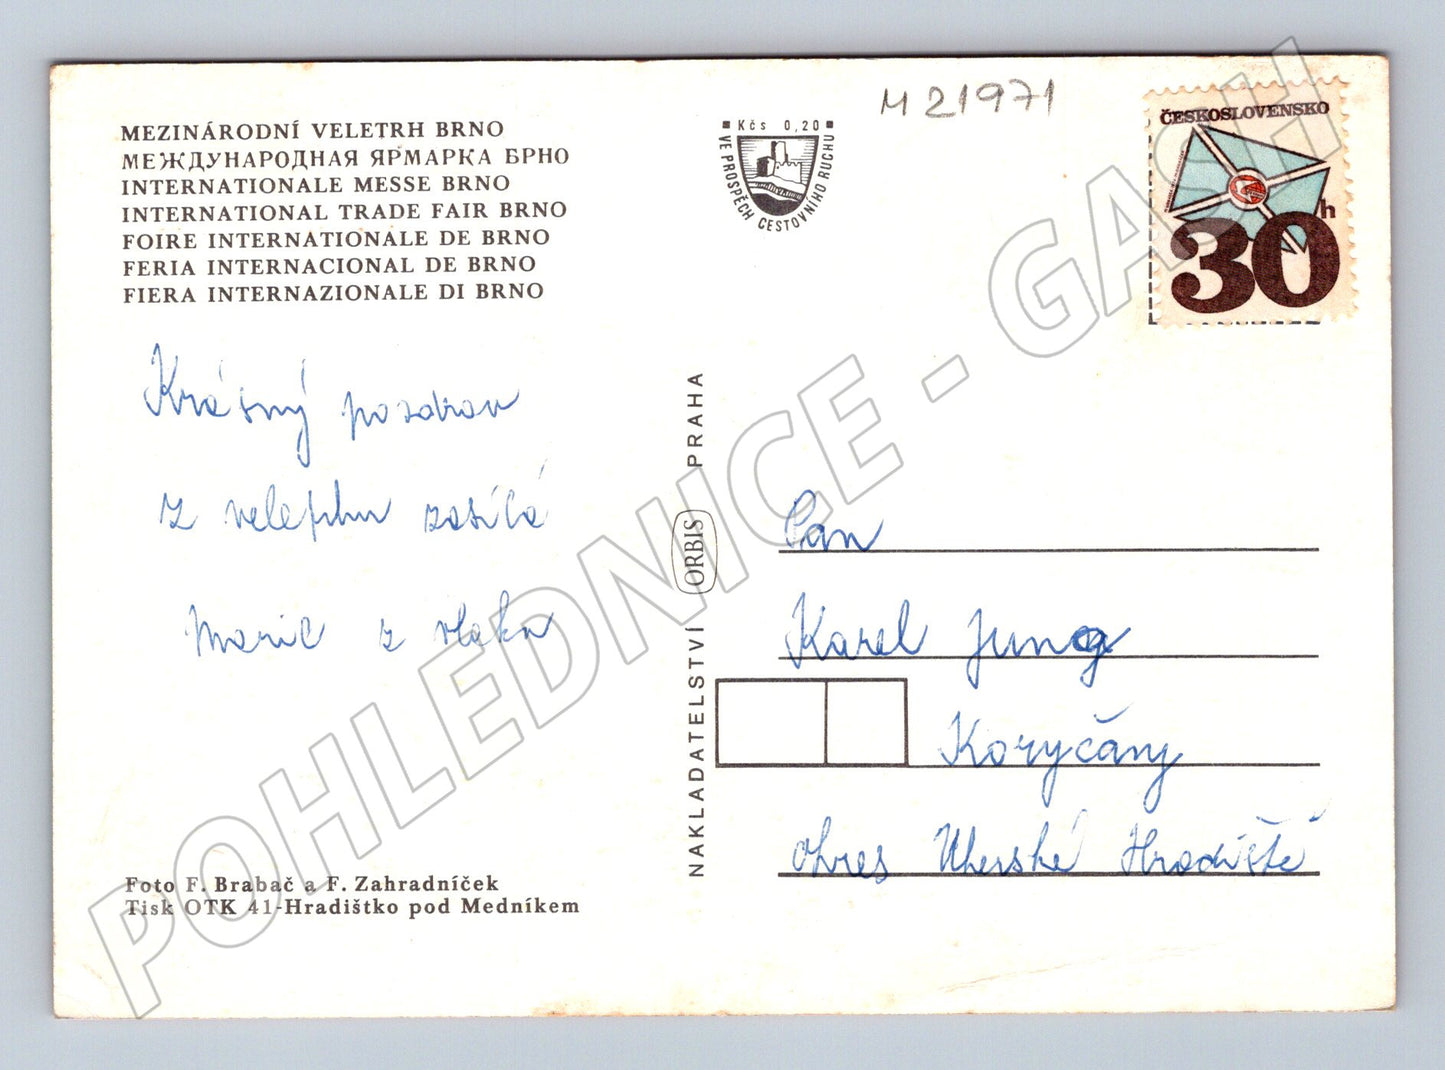 MEZINÁRODNÍ VELETRH BRNO
МЕЖДУНАРОДНАЯ ЯРМАРКА БРНО
INTERNATIONALE MESSE BRNO
INTERNATIONAL TRADE FAIR BRNO
FOIRE INTERNATIONALE DE BRNO
FERIA INTERNACIONAL DE BRNO
FIERA INTERNAZIONALE DI BRNO
Krásný pozdrav
z veletrhu zasílá
z vlaku
Foto F. Brabač a F. Zahradníček
Tisk OTK 41-Hradištko pod Medníkem
Kčs 0,20
VE PROSPĚCH CESTOVNÍHO RUCHU
M 21971
ČESKOSLOVENSKO
30 h
NAKLADATELSTVÍ ORBIS PRAHA
Pan
Karel Jung
Koryčany
okres Uherské Hradiště
POHLEDNICE - GASH